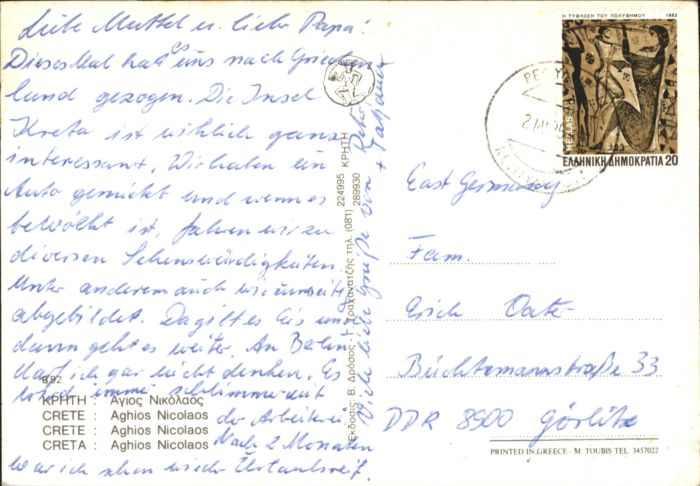 Liebe Muttel u. lieber Papa!
Dieses Mal hat es uns nach Griechen
land gezogen. Die Insel
Kreta ist wirklich ganz
interessant. Wir haben ein
Auto gemietet und wenn es
bewölkt ist, fahren wir zu
diversen Sehenswürdigkeiten.
Unter anderem auch wie umseitig
abgebildet. Da gibt es Eis und
dann geht es weiter. An Bahne
darf ich gar nicht denken. Es
wird immer schlimmer mit
der Arbeiterei
Nach 2 Monaten
war ich schon wieder Urlaubsreif.
Viele liebe Grüße von
+ Tatjana
892
ΚΡΗΤΗ : Άγιος Νικόλαος
CRETE : Aghios Nicolaos
CRETE : Aghios Nicolaos
CRETA : Aghios Nicolaos
Εκδοσις: Β. Δρόσος - Γ. Τραχανατζής τηλ. (081) 224995 ΚΡΗΤΗ
289930
Η ΤΥΦΛΩΣΗ ΤΟΥ ΠΟΛΥΦΗΜΟΥ 1983
HELLAS
ΕΛΛΗΝΙΚΗ ΔΗΜΟΚΡΑΤΙΑ 20
East Germany
Fam.
Erich
Büchtemannstraße 33
DDR 8900 Görlitz
PRINTED IN GREECE - M. TOUBIS TEL. 3457022